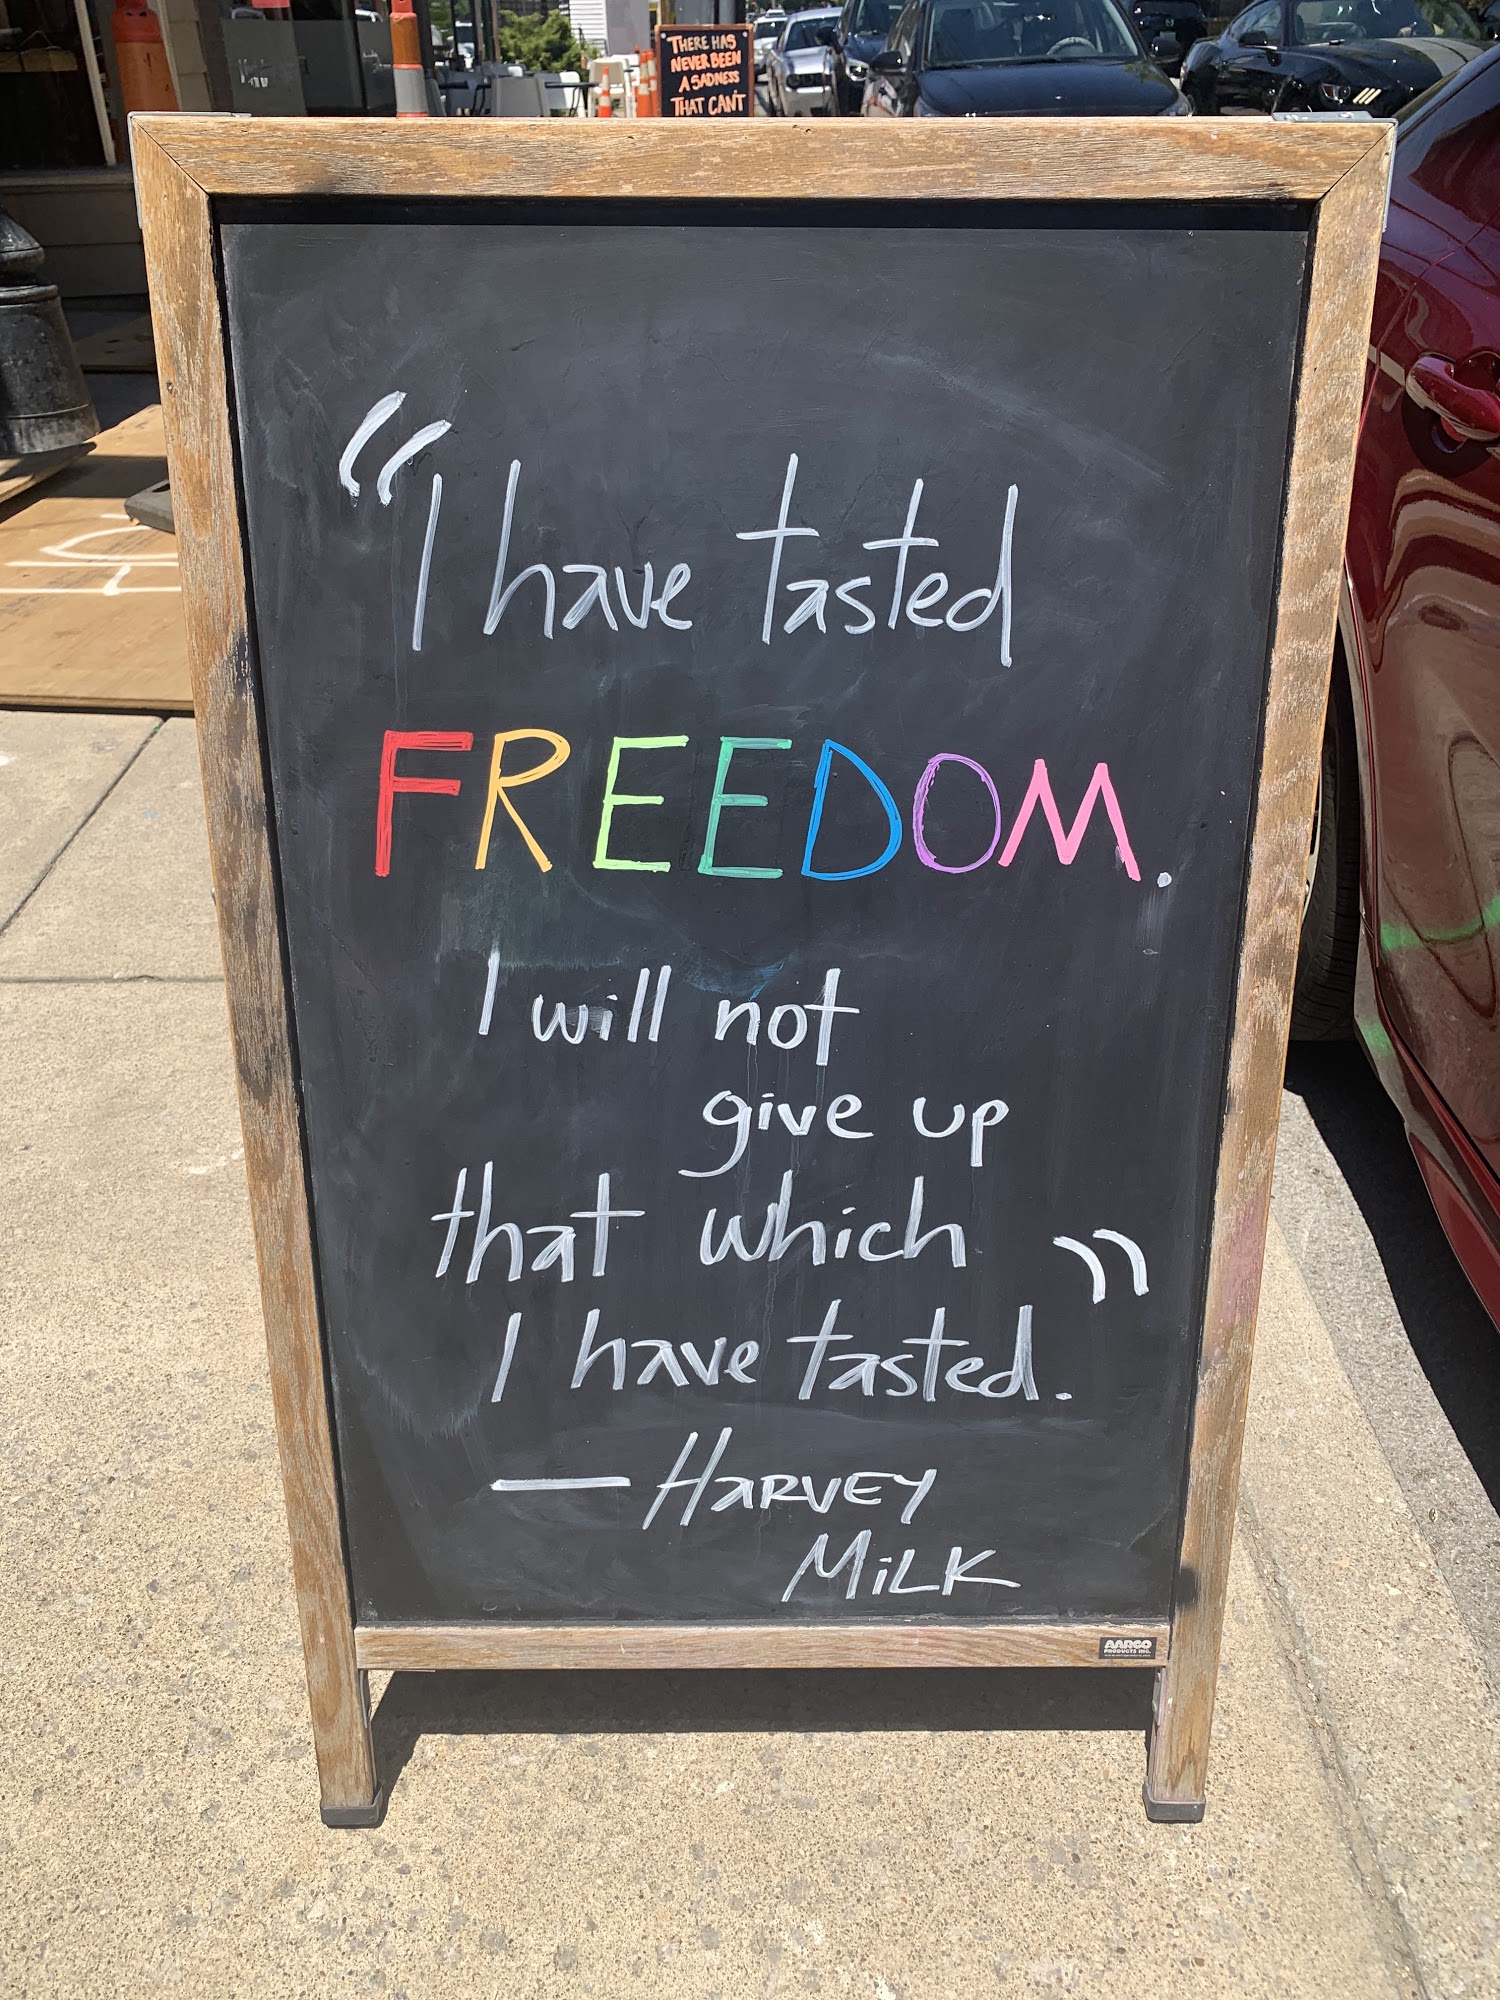 THERE HAS
NEVER BEEN
A SADNESS
THAT CAN'T
“I have tasted
FREEDOM.
I will not
give up
that which
I have tasted.”
— HARVEY
MiLK
AARCO
PRODUCTS INC.